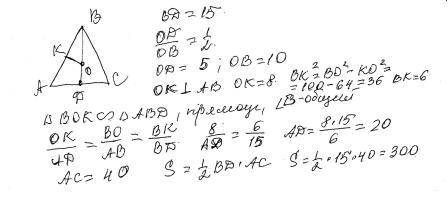 B
K
O
A
C
D
BD = 15.
OD/OB = 1/2
OD = 5 ; OB = 10
OK ⊥ AB OK = 8. BK² = BO² - KO² =
= 100 - 64 = 36 BK = 6
△ BOK ∽ △ ABD, прямоуг, ∠B - общий
OK/AD = BO/AB = BK/BD 8/AD = 6/15 AD = 8·15/6 = 20
AC = 40 S = 1/2 BD · AC S = 1/2 · 15 · 40 = 300